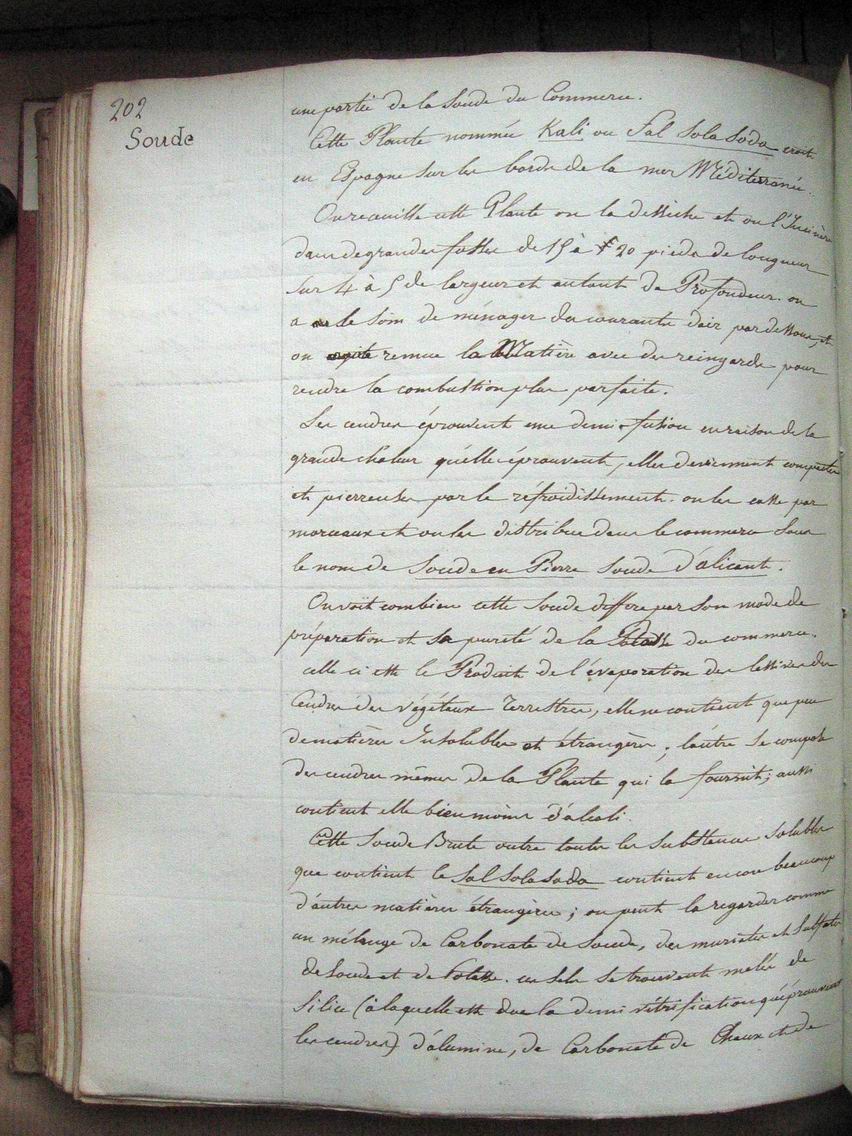 202
Soude
une partie de la Soude du Commerce.
Cette Plante nommée Kali ou Sal Sola Soda croit
en Espagne sur les bords de la mer Méditerranée.
On recueille cette Plante on la dessèche et on l'Incinère
dans de grandes fosses de 15 à 20 pieds de longueur
sur 4 à 5 de largeur et autant de Profondeur. on
a le soin de ménager des courants d'air par dessous, et
on remue la Matière avec des reingards pour
rendre la combustion plus parfaite.
Les cendres éprouvent une demi-fusion en raison de la
grande chaleur qu'elles éprouvent, elles deviennent compactes
et pierreuses par le réfroidissement. on les casse par
morceaux et on les distribue dans le commerce sous
le nom de Soude en Pierre Soude d'alicant.
On voit combien cette Soude diffère par son mode de
préparation et sa pureté de la Potasse du commerce.
celle ci est le Produit de l'évaporation des lessives des
Cendres des végétaux Terrestres, elle ne contient que peu
de matières Insolubles et étrangères; l'autre se compose
des cendres mêmes de la Plante qui la fournit; aussi
contient elle bien moins d'alcali.
Cette Soude Brute outre toutes les substances solubles
que contient le Sal Sola Soda contient encore beaucoup
d'autres matières étrangères; on peut la regarder comme
un mélange de Carbonate de Soude, des muriates et Sulfates
de Soude et de Potasse. ces sels se trouvent mêlés de
Silice (à laquelle est due la demi vitrification qu'éprouvent
les cendres) d'alumine, de Carbonate de Chaux et de